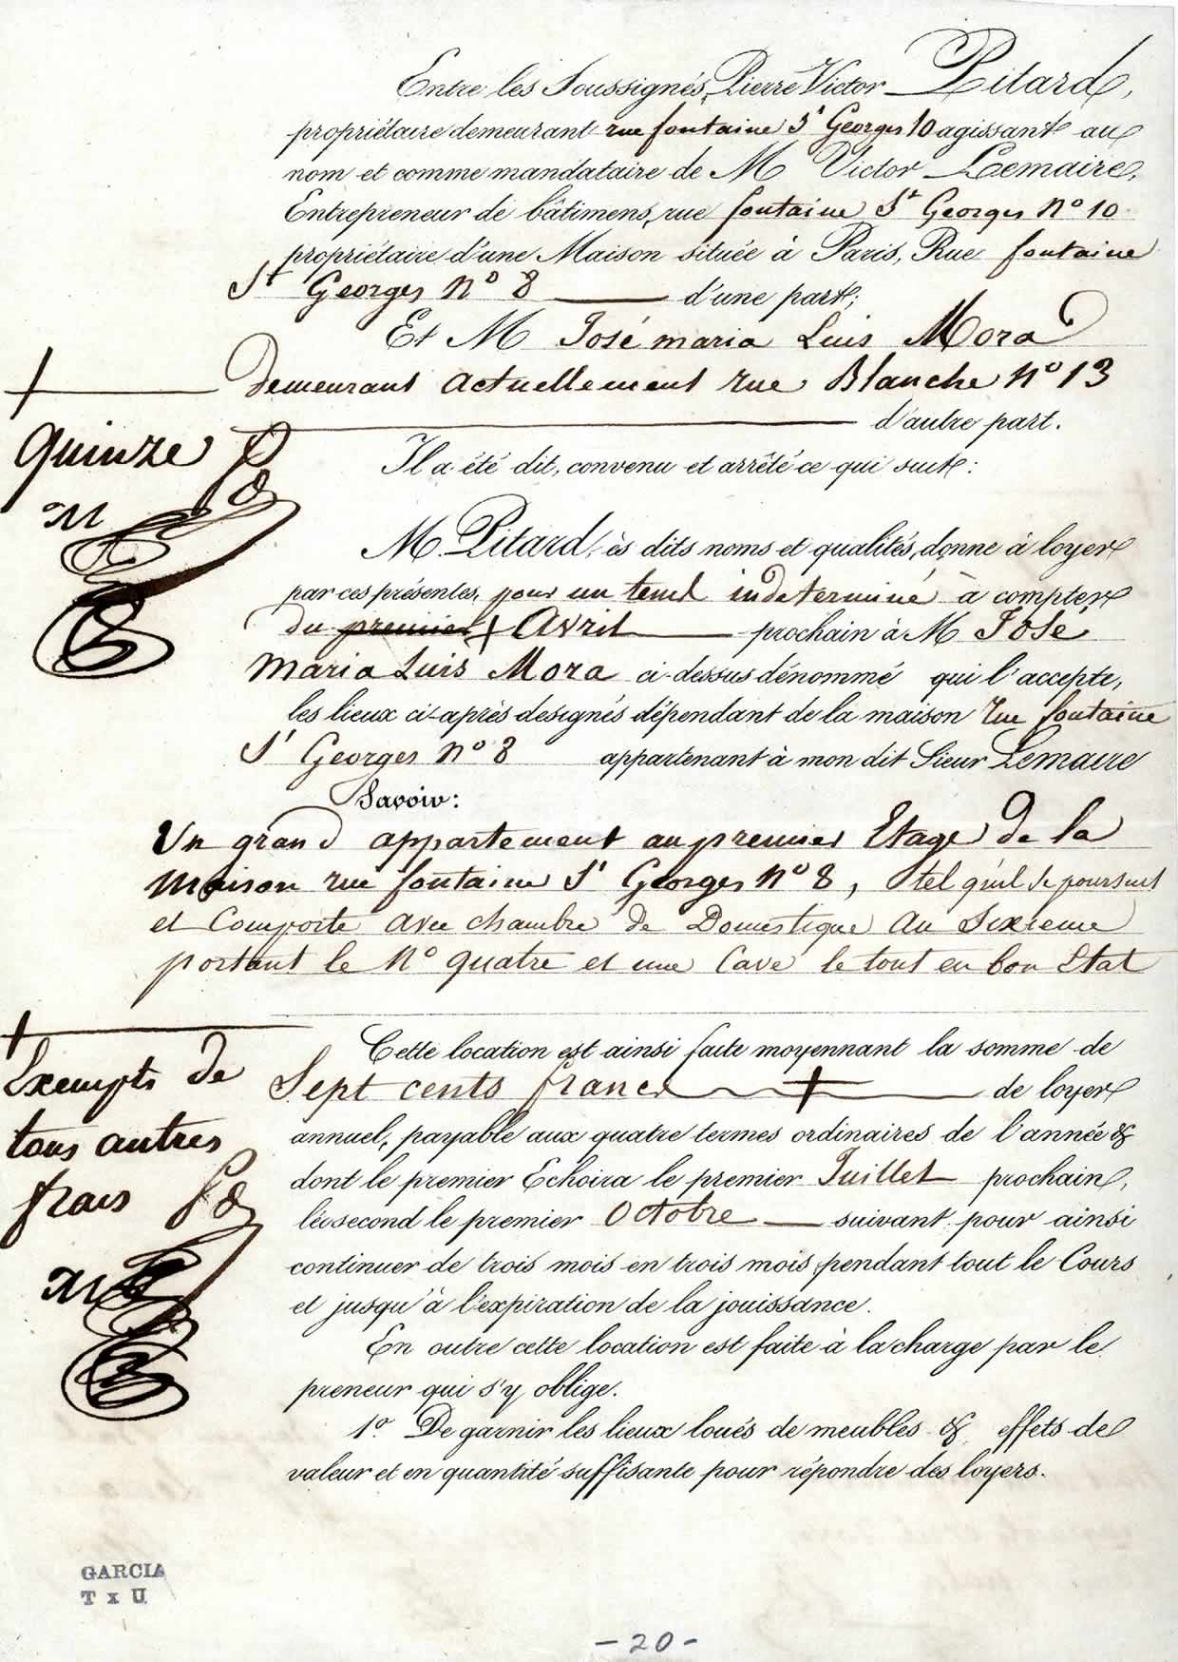 Entre les Soussignés, Pierre Victor Pitard,
propriétaire demeurant rue fontaine St Georges 10 agissant au
nom et comme mandataire de M Victor Lemaire,
Entrepreneur de bâtimens, rue fontaine St Georges No 10
propriétaire d'une Maison située à Paris, Rue fontaine
St Georges No 8 d'une part;
Et M José maria Luis Mora
demeurant actuellement rue Blanche No 13
d'autre part.
quinze
M
Il a été dit, convenu et arrêté ce qui suit:
M. Pitard, ès dits noms et qualités, donne à loyer
par ces présentes, pour un temps indeterminé à compter
du premier + Avril prochain à M José
Maria Luis Mora ci-dessus dénommé qui l'accepte,
les lieux ci-après designés dépendant de la maison rue fontaine
St Georges No 8 appartenant à mon dit Sieur Lemaire
Savoir:
Un grand appartement au premier Etage de la
Maison rue fontaine St Georges No 8, tel qu'il se poursuit
et Comporte avec chambre de Domestique au Sixieme
portant le No quatre et une Cave le tout en bon Etat
Exempts de
tous autres
frais
M
Cette location est ainsi faite moyennant la somme de
Sept cents francs + de loyer
annuel, payable aux quatre termes ordinaires de l'année &
dont le premier Echoira le premier Juillet prochain,
le second le premier Octobre suivant pour ainsi
continuer de trois mois en trois mois, pendant tout le Cours
et jusqu'à l'expiration de la jouissance.
En outre cette location est faite à la charge par le
preneur qui s'y oblige.
1o. De garnir les lieux loués de meubles & effets de
valeur et en quantité suffisante pour répondre des loyers.
GARCIA
T x U
- 20 -